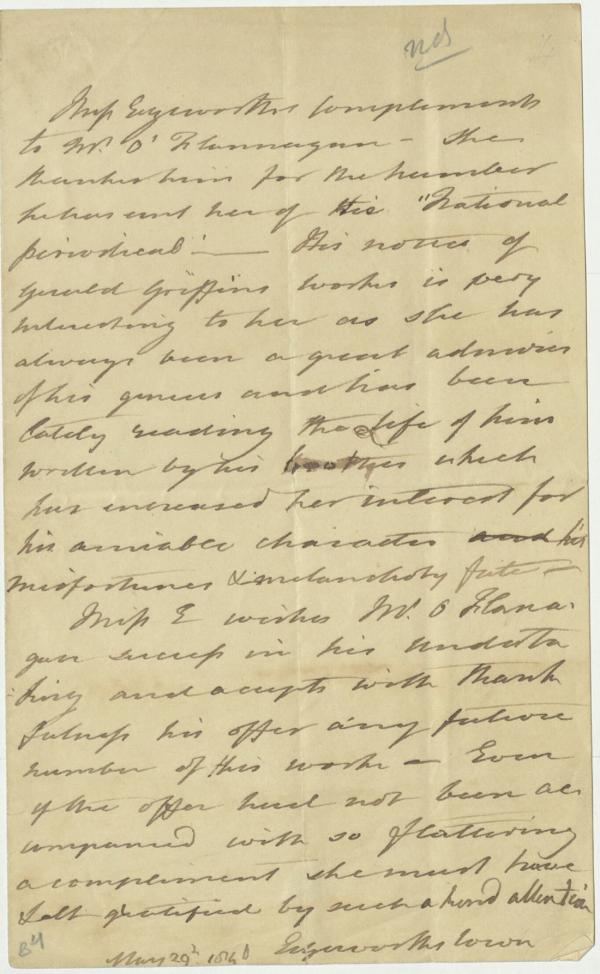 nd
Miss Edgeworths compliments
to Mr. O' Flannagan — She
thanks him for the number
he has sent her of his "National
periodical" — His notice of
Gerald Griffins works is very
interesting to her as she has
always been a great admirer
of his genius and has been
lately reading the Life of him
written by his brother which
has increased her interest for
his amiable character and his
misfortunes & melancholy fate —
Miss E wishes Mr. O Flana-
gan success in his underta
king and accepts with thank
fulness his offer any future
number of this work — Even
if the offer had not been ac
companied with so flattering
a compliment she must have
felt gratified by such a kind attention
Edgeworths Town
May 29th